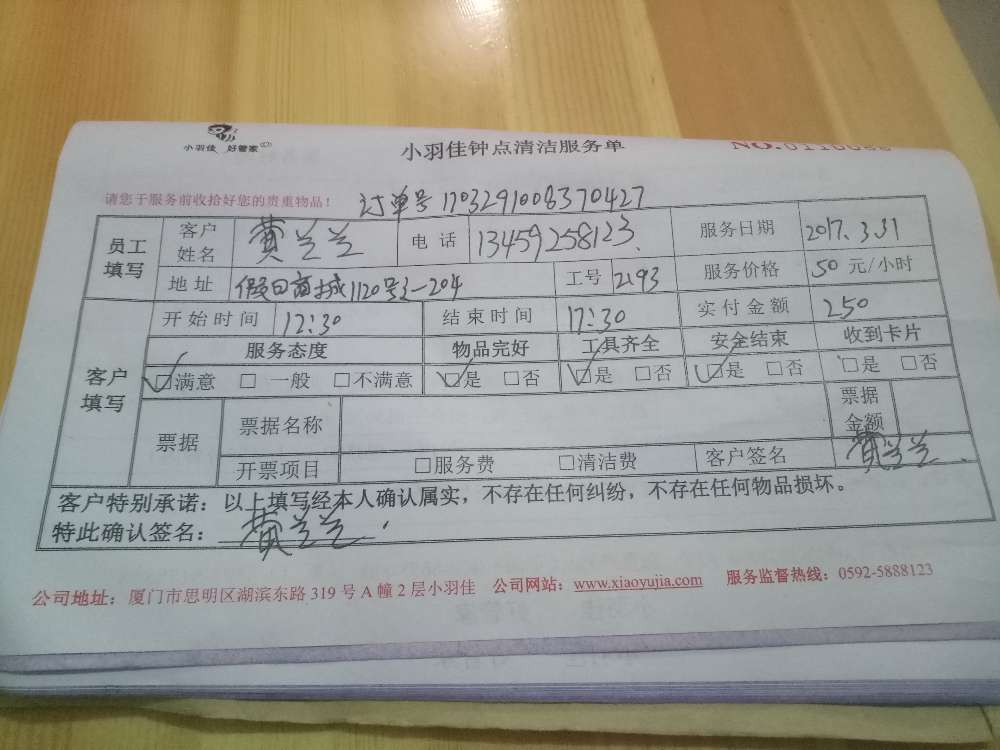 小羽佳 好管家
小羽佳钟点清洁服务单
请您于服务前收拾好您的贵重物品！ 订单号 1703291008370427
员工填写 客户姓名 黄兰兰 电话 13459258123 服务日期 2017.3.31
地址 假日商城1120号2-204 工号 2193 服务价格 50 元/小时
客户填写 开始时间 12:30 结束时间 17:30 实付金额 250
服务态度 物品完好 工具齐全 安全结束 收到卡片
☑满意 □ 一般 □不满意 ☑是 □否 ☑是 □否 ☑是 □否 □是 □否
票据 票据名称 票据金额
开票项目 □服务费 □清洁费 客户签名 黄兰兰
客户特别承诺：以上填写经本人确认属实，不存在任何纠纷，不存在任何物品损坏。
特此确认签名：黄兰兰
公司地址：厦门市思明区湖滨东路 319 号 A 幢 2 层小羽佳 公司网站：www.xiaoyujia.com 服务监督热线：0592-5888123